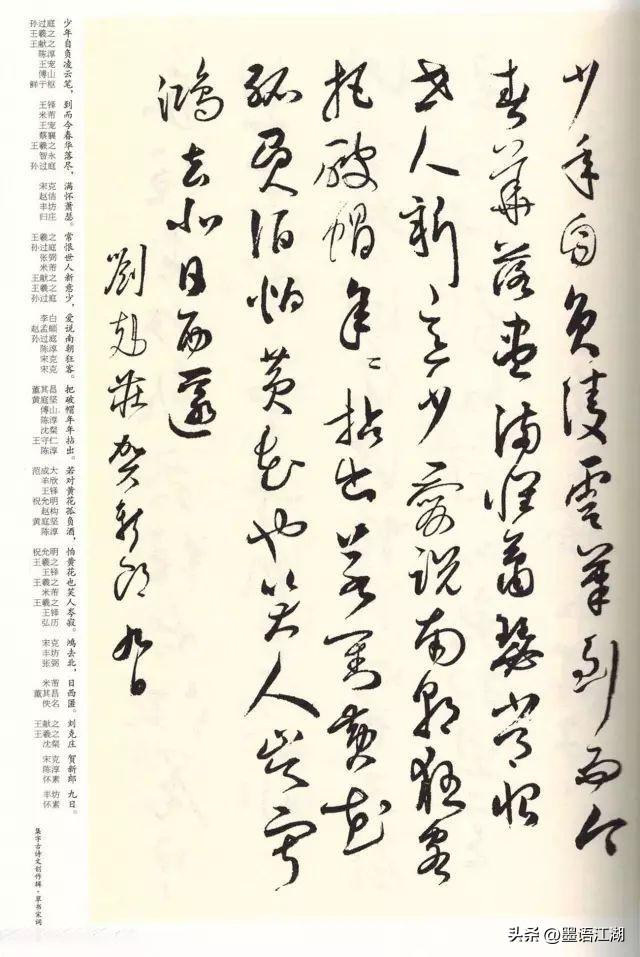 少年自負陵雲筆到而今
春華落盡滿懷蕭瑟常恨
世人新意少愛說南朝狂客
把破帽年年拈出若對黃花
孤負酒怕黃花也笑人岑寂
鴻去北日西匿
劉克莊賀新郎九日
少年自负凌云笔，
孙过庭
王羲之
王献之
陈淳
王宠
傅山
鲜于枢
到而今春华落尽，
王铎
米芾
王宠
蔡襄
王羲之
智永
孙过庭
满怀萧瑟。
宋克
赵佶
丰坊
归庄
常恨世人新意少，
王羲之
孙过庭
张弼
米芾
王献之
王羲之
孙过庭
爱说南朝狂客。
李白
赵孟頫
孙过庭
陈淳
宋克
宋克
把破帽年年拈出。
董其昌
黄庭坚
傅山
陈淳
沈粲
王守仁
陈淳
若对黄花孤负酒，
范成大
羊欣
王铎
祝允明
赵构
黄庭坚
陈淳
怕黄花也笑人岑寂。
祝允明
王羲之
王铎
王羲之
米芾
王羲之
王铎
弘历
鸿去北，
宋克
丰坊
张弼
日西匿。
米芾
董其昌
佚名
刘克庄
王献之
王羲之
沈粲
贺新郎
宋克
陈淳
怀素
九日。
丰坊
怀素
集字古诗文创作辑·草书宋词
头条 @墨语江湖